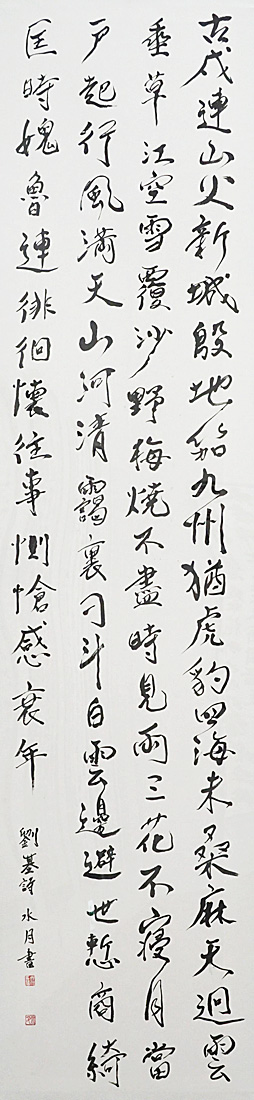 古戍連山火新城殷地笳九州猶虎豹四海未桑麻天迥雲
垂草江空雪覆沙野梅燒不盡時見兩三花不寢月當
戶起行風滿天山河清靄裏刁斗白雲邊避世慙商綺
匡時媿魯連徘徊懷往事惻愴感衰年
劉基詩 水月書